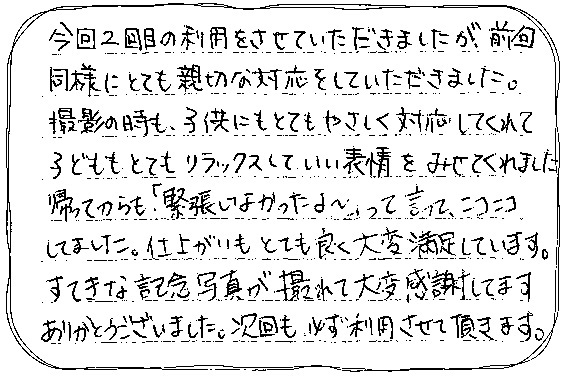 今回2回目の利用をさせていただきましたが、前回
同様にとても親切な対応をしていただきました。
撮影の時も、子供にもとてもやさしく対応してくれて
子どももとてもリラックスしていい表情をみせてくれました
帰ってからも「緊張しなかったよ～」って言って、ニコニコ
してました。仕上がりもとても良く大変満足しています。
すてきな記念写真が撮れて大変感謝してます
ありがとうございました。次回も必ず利用させて頂きます。